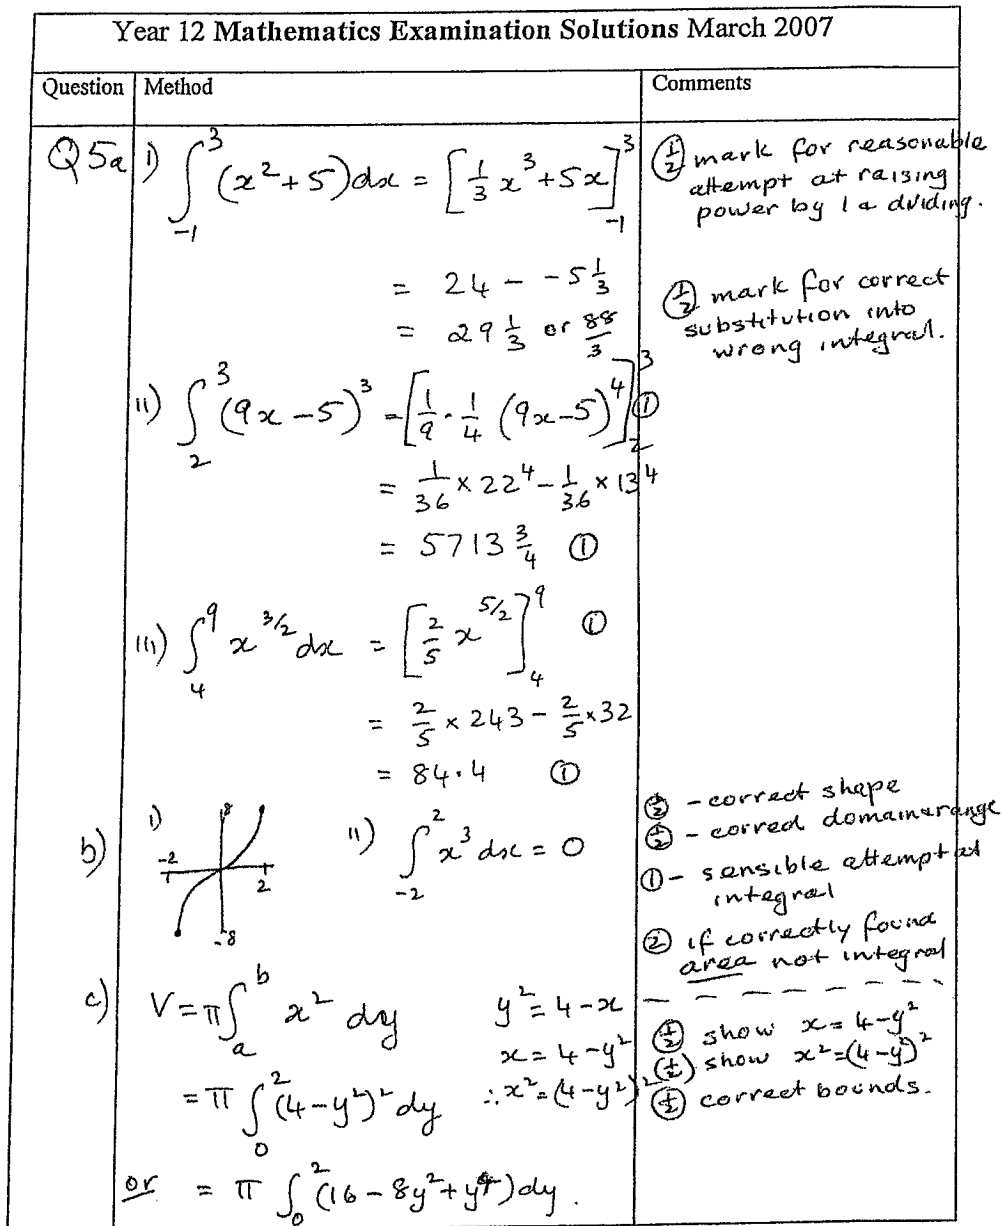 Year 12 Mathematics Examination Solutions March 2007
Question Method Comments
Q5a i) ∫₋₁³ (x² + 5)dx = [⅓ x³ + 5x]₋₁³
½ mark for reasonable
attempt at raising
power by 1 & dividing.
= 24 - -5⅓
= 29⅓ or 88/3
½ mark for correct
substitution into
wrong integral.
ii) ∫₂³ (9x - 5)³ = [1/9 · 1/4 (9x - 5)⁴]₂³ ①
= 1/36 × 22⁴ - 1/36 × 13⁴
= 5713¾ ①
iii) ∫₄⁹ x^{3/2} dx = [2/5 x^{5/2}]₄⁹ ①
= 2/5 × 243 - 2/5 × 32
= 84.4 ①
b) i) 8 -2 2 -8
ii) ∫₋₂² x³ dx = 0
½ - correct shape
½ - correct domain & range
① - sensible attempt at
integral
② if correctly found
area not integral
c) V = π∫ₐᵇ x² dy y² = 4 - x
x = 4 - y²
= π ∫₀² (4 - y²)² dy ∴ x² = (4 - y²)²
½ show x = 4 - y²
½ show x² = (4 - y²)²
½ correct bounds.
or = π ∫₀² (16 - 8y² + y⁴) dy.